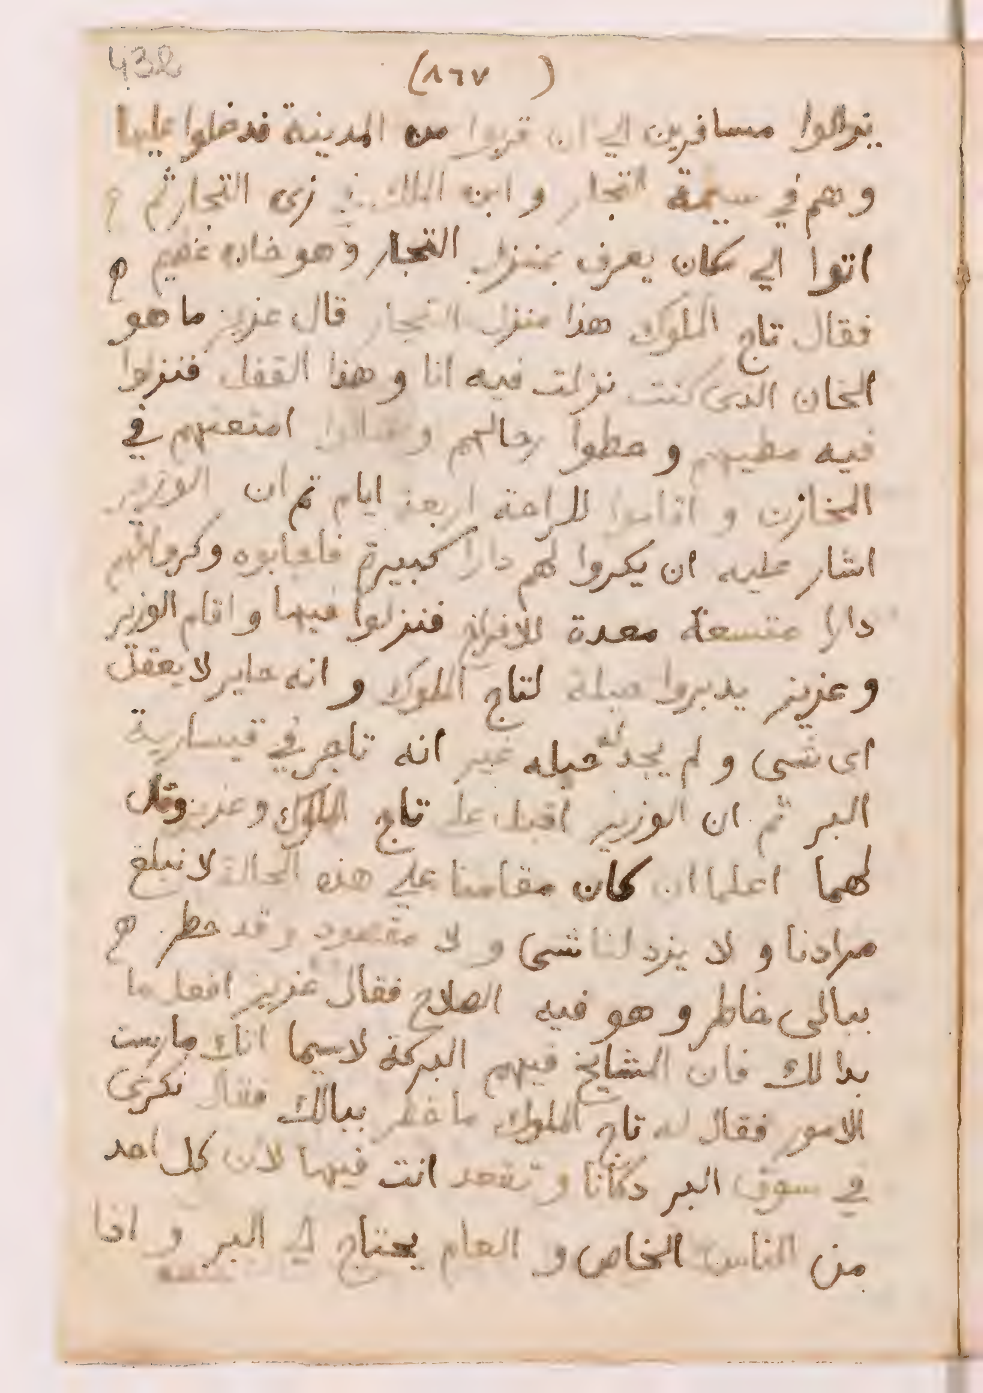 438
(٨٦٧ )
يزالوا مسافرين الي ان قربوا من المدينة فدخلوا عليها
وهم في سيمة التجار و ابن الملك في زى التجار ثم
اتوا الي مكان يعرف بمنزل التجار وهو خان عظيم
فقال تاج الملوك هذا منزل التجار قال عزيز ما هو
الخان الذى كنت نزلت فيه انا و هذا القفل فنزلوا
فيه مطيهم و حطوا رحالهم و امتعتهم في
المخازن و اقاموا للراحة اربعة ايام ثم ان الوزير
اشار عليه ان يكروا لهم دارا كبيرة فاجابوه وكروا لهم
دارا متسعة معدة للافراح فنزلوا فيها و اقام الوزير
و عزيز يدبروا حيلة لتاج الملوك و انه حاير لا يعقل
اى شى و لم يجد له حيله غير انه تاجر في قيسارية
البر ثم ان الوزير اقبل على تاج الملوك و عزيز وقال
لهما اعلما ان كان مقامنا علي هذه الحالة لا نبلغ
مرادنا و لا يزد لنا شى و لا مقصود و قد خطر
ببالى خاطر و هو فيه الصلاح فقال عزيز افعل ما
بدا لك فان المشايخ فيهم البركة لاسيما انك مارست
الامور فقال له تاج الملوك ما خطر ببالك فقال نكرى
في سوق البر دكانا و تقعد انت فيها لان كل احد
من الناس الخاص و العام يحتاج الي البر و اذا